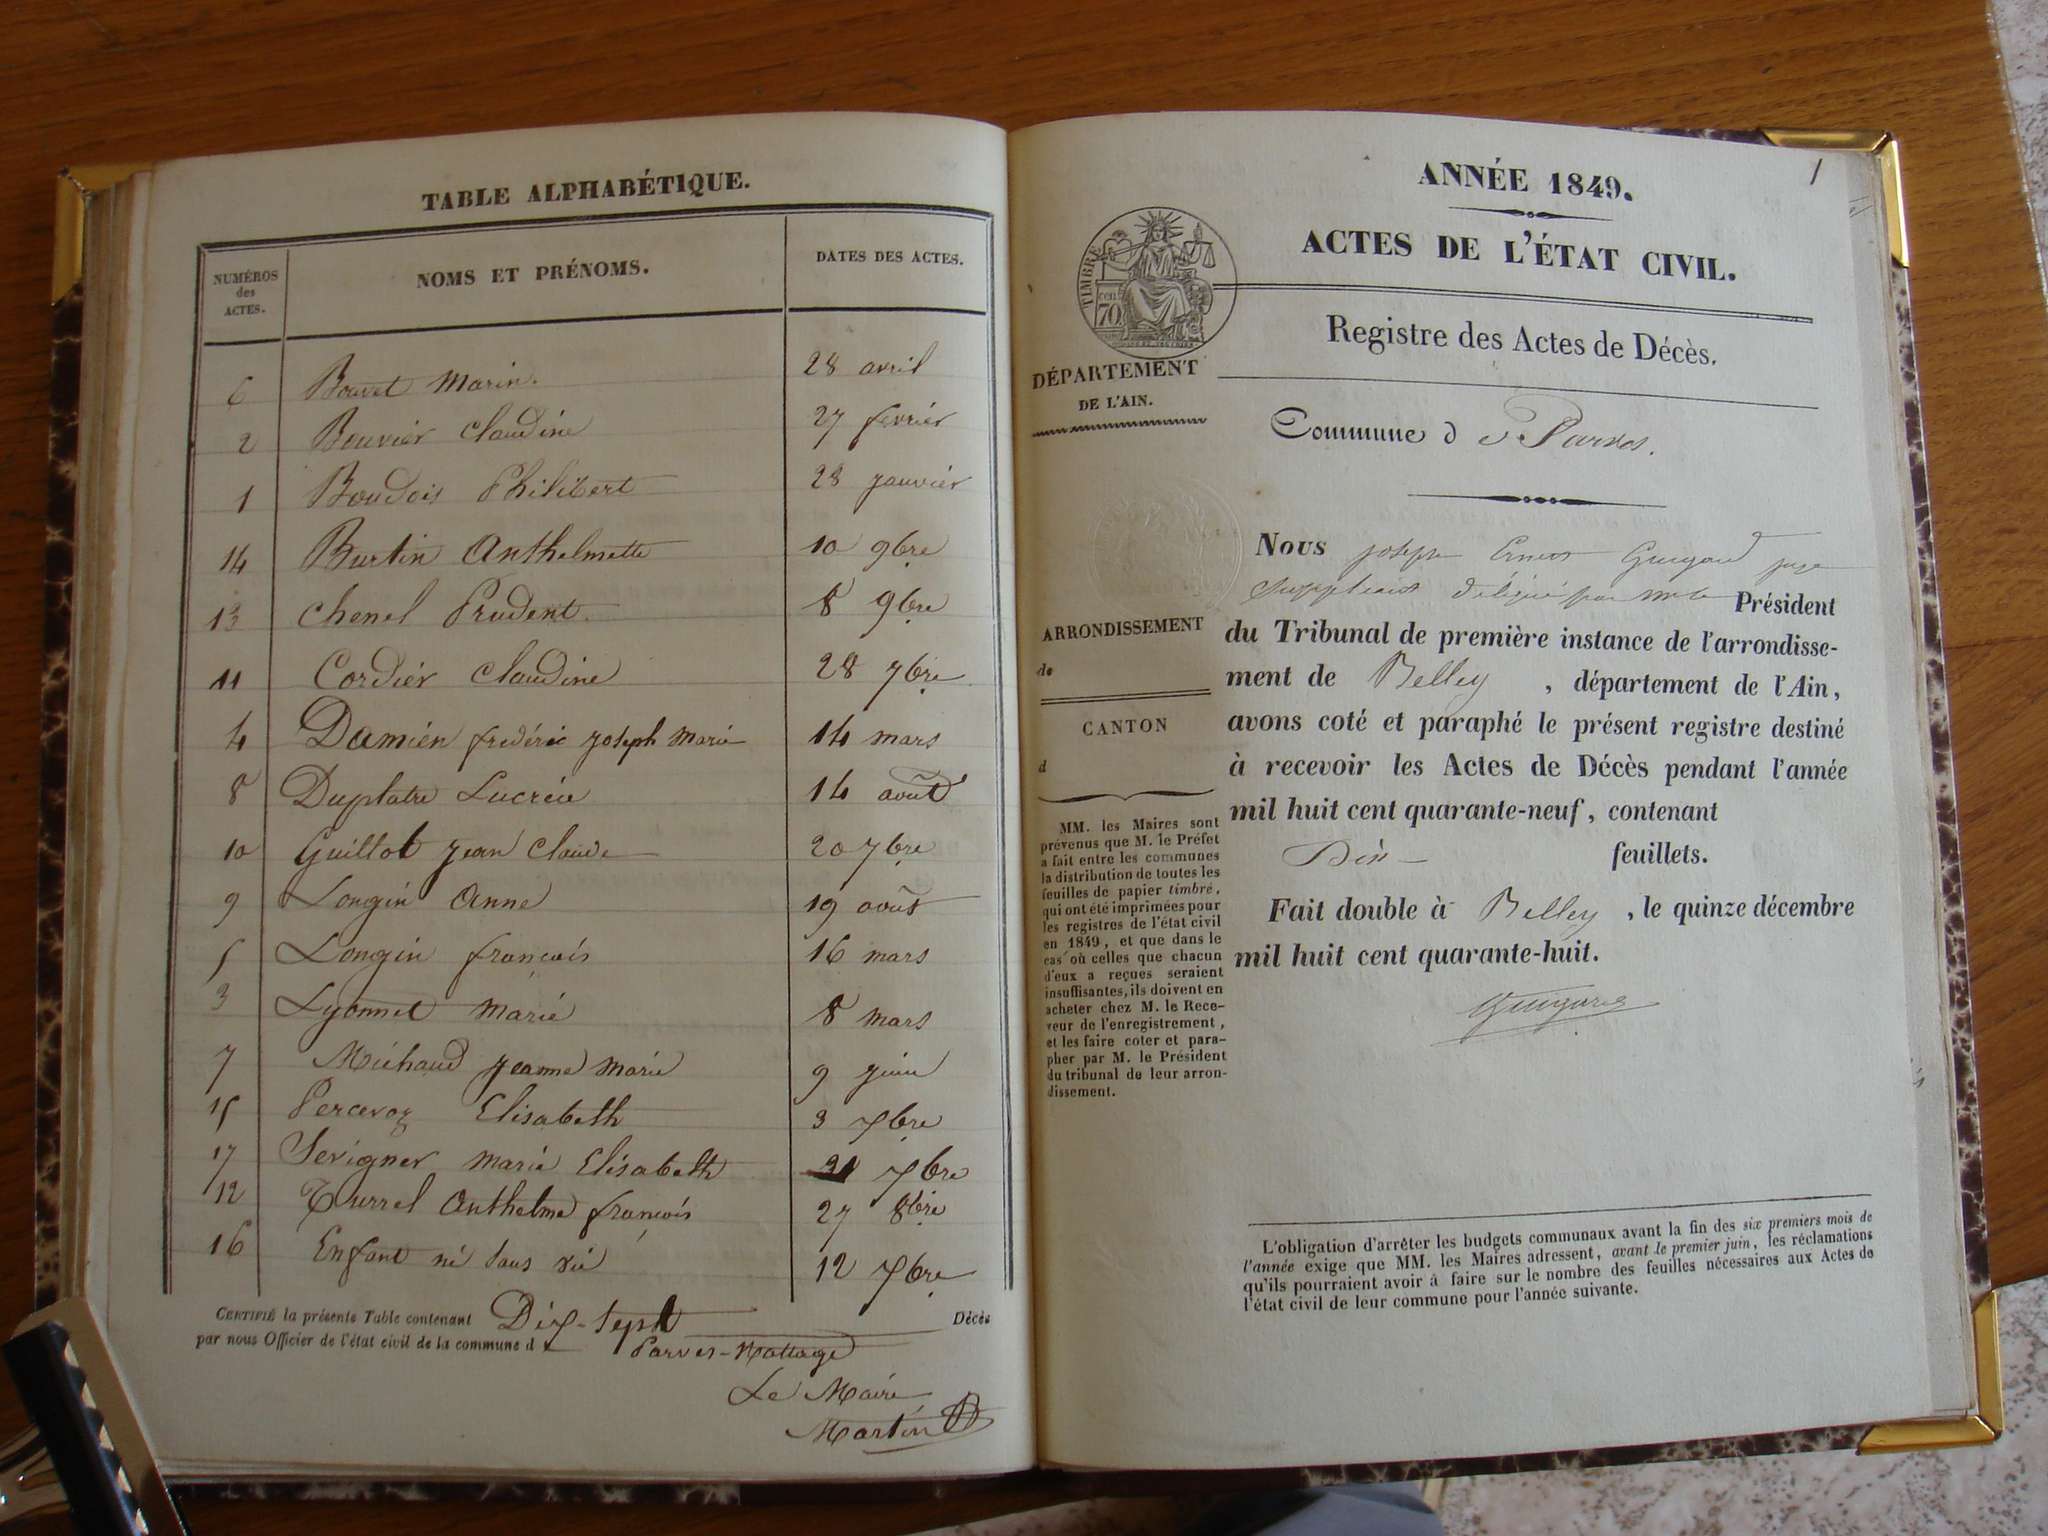 TABLE ALPHABÉTIQUE.
NUMÉROS des ACTES. NOMS ET PRÉNOMS. DATES DES ACTES.
6 Bouvet Marin. 28 avril
2 Bouvier Claudine 27 fevrier
1 Boudois Philibert 28 janvier
14 Burtin Anthelmette 10 9bre
13 Chenel Prudent. 8 9bre
11 Cordier Claudine 28 7bre
4 Damien frédéric joseph marie 14 mars
8 Duplatre Lucrèce 14 août
10 Guillot jean Claude 20 7bre
9 Longin Anne 19 août
5 Longin françois 16 mars
3 Lyonnet Marie 8 mars
7 Michaud jeanne Marie 9 juin
15 Percevoz Elisabeth 3 Xbre
17 Sevigner Marie Elisabeth 21 Xbre
12 Turrel Anthelme françois 27 8bre
16 Enfant né sans vie 12 Xbre
CERTIFIÉ la présente Table contenant Dix-sept Décès
par nous Officier de l'état civil de la commune d Parves-Nattage
Le Maire
Martin
1
ANNÉE 1849.
ACTES DE L'ÉTAT CIVIL.
Registre des Actes de Décès.
TIMBRE
cen. 70
DÉPARTEMENT
DE L'AIN.
Commune de Parves.
Nous joseph Ernest juge
suppléant délégué par Mr le Président
du Tribunal de première instance de l'arrondisse-
ment de Belley, département de l'Ain,
avons coté et paraphé le présent registre destiné
à recevoir les Actes de Décès pendant l'année
mil huit cent quarante-neuf, contenant
Dix feuillets.
Fait double à Belley, le quinze décembre
mil huit cent quarante-huit.
ARRONDISSEMENT
de
CANTON
d
MM. les Maires sont
prévenus que M. le Préfet
a fait entre les communes
la distribution de toutes les
feuilles de papier timbré,
qui ont été imprimées pour
les registres de l'état civil
en 1849, et que dans le
cas où celles que chacun
d'eux a reçues seraient
insuffisantes, ils doivent en
acheter chez M. le Rece-
veur de l'enregistrement,
et les faire coter et para-
pher par M. le Président
du tribunal de leur arron-
dissement.
L'obligation d'arrêter les budgets communaux avant la fin des six premiers mois de
l'année exige que MM. les Maires adressent, avant le premier juin, les réclamations
qu'ils pourraient avoir à faire sur le nombre des feuilles nécessaires aux Actes de
l'état civil de leur commune pour l'année suivante.